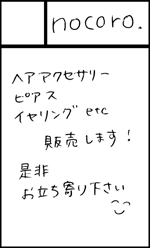 nocoro.
ヘアアクセサリー
ピアス
イヤリング etc
販売します!
是非
お立ち寄り下さい